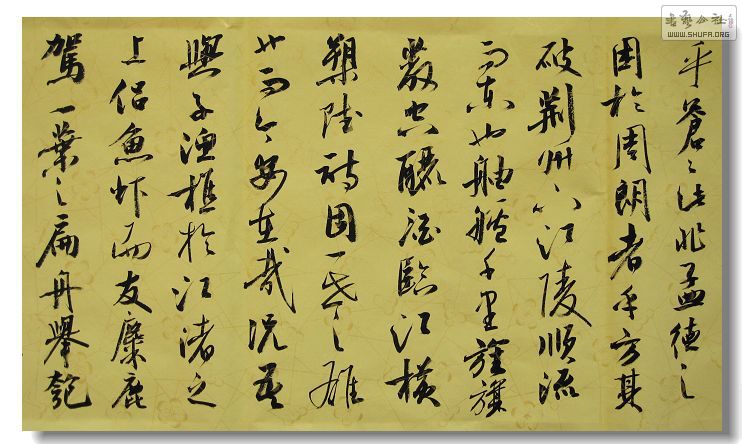 乎蒼〻此非孟德之
困於周郎者乎方其
破荊州下江陵順流
而東也舳艫千里旌旗
蔽空釃酒臨江橫
槊賦詩固一世之雄
也而今安在哉況吾
與子漁樵於江渚之
上侶魚虾而友麋鹿
駕一葉之扁舟舉匏
书艺公社
WWW.SHUFA.ORG